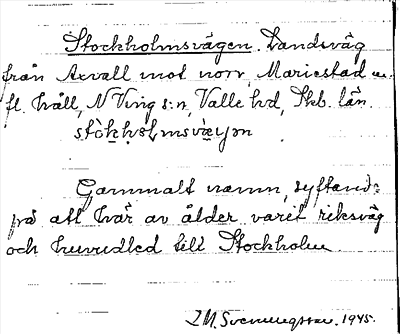 Stockholmsvägen. Landsväg
från Axvall mot norr, Mariestad m.
fl. håll, N Ving s:n, Valle hd, Skb. län.
Gammalt namn, syftand:
på att här av ålder varit riksväg
och huvudled till Stockholm.
I M. Svennungsson. 1945.